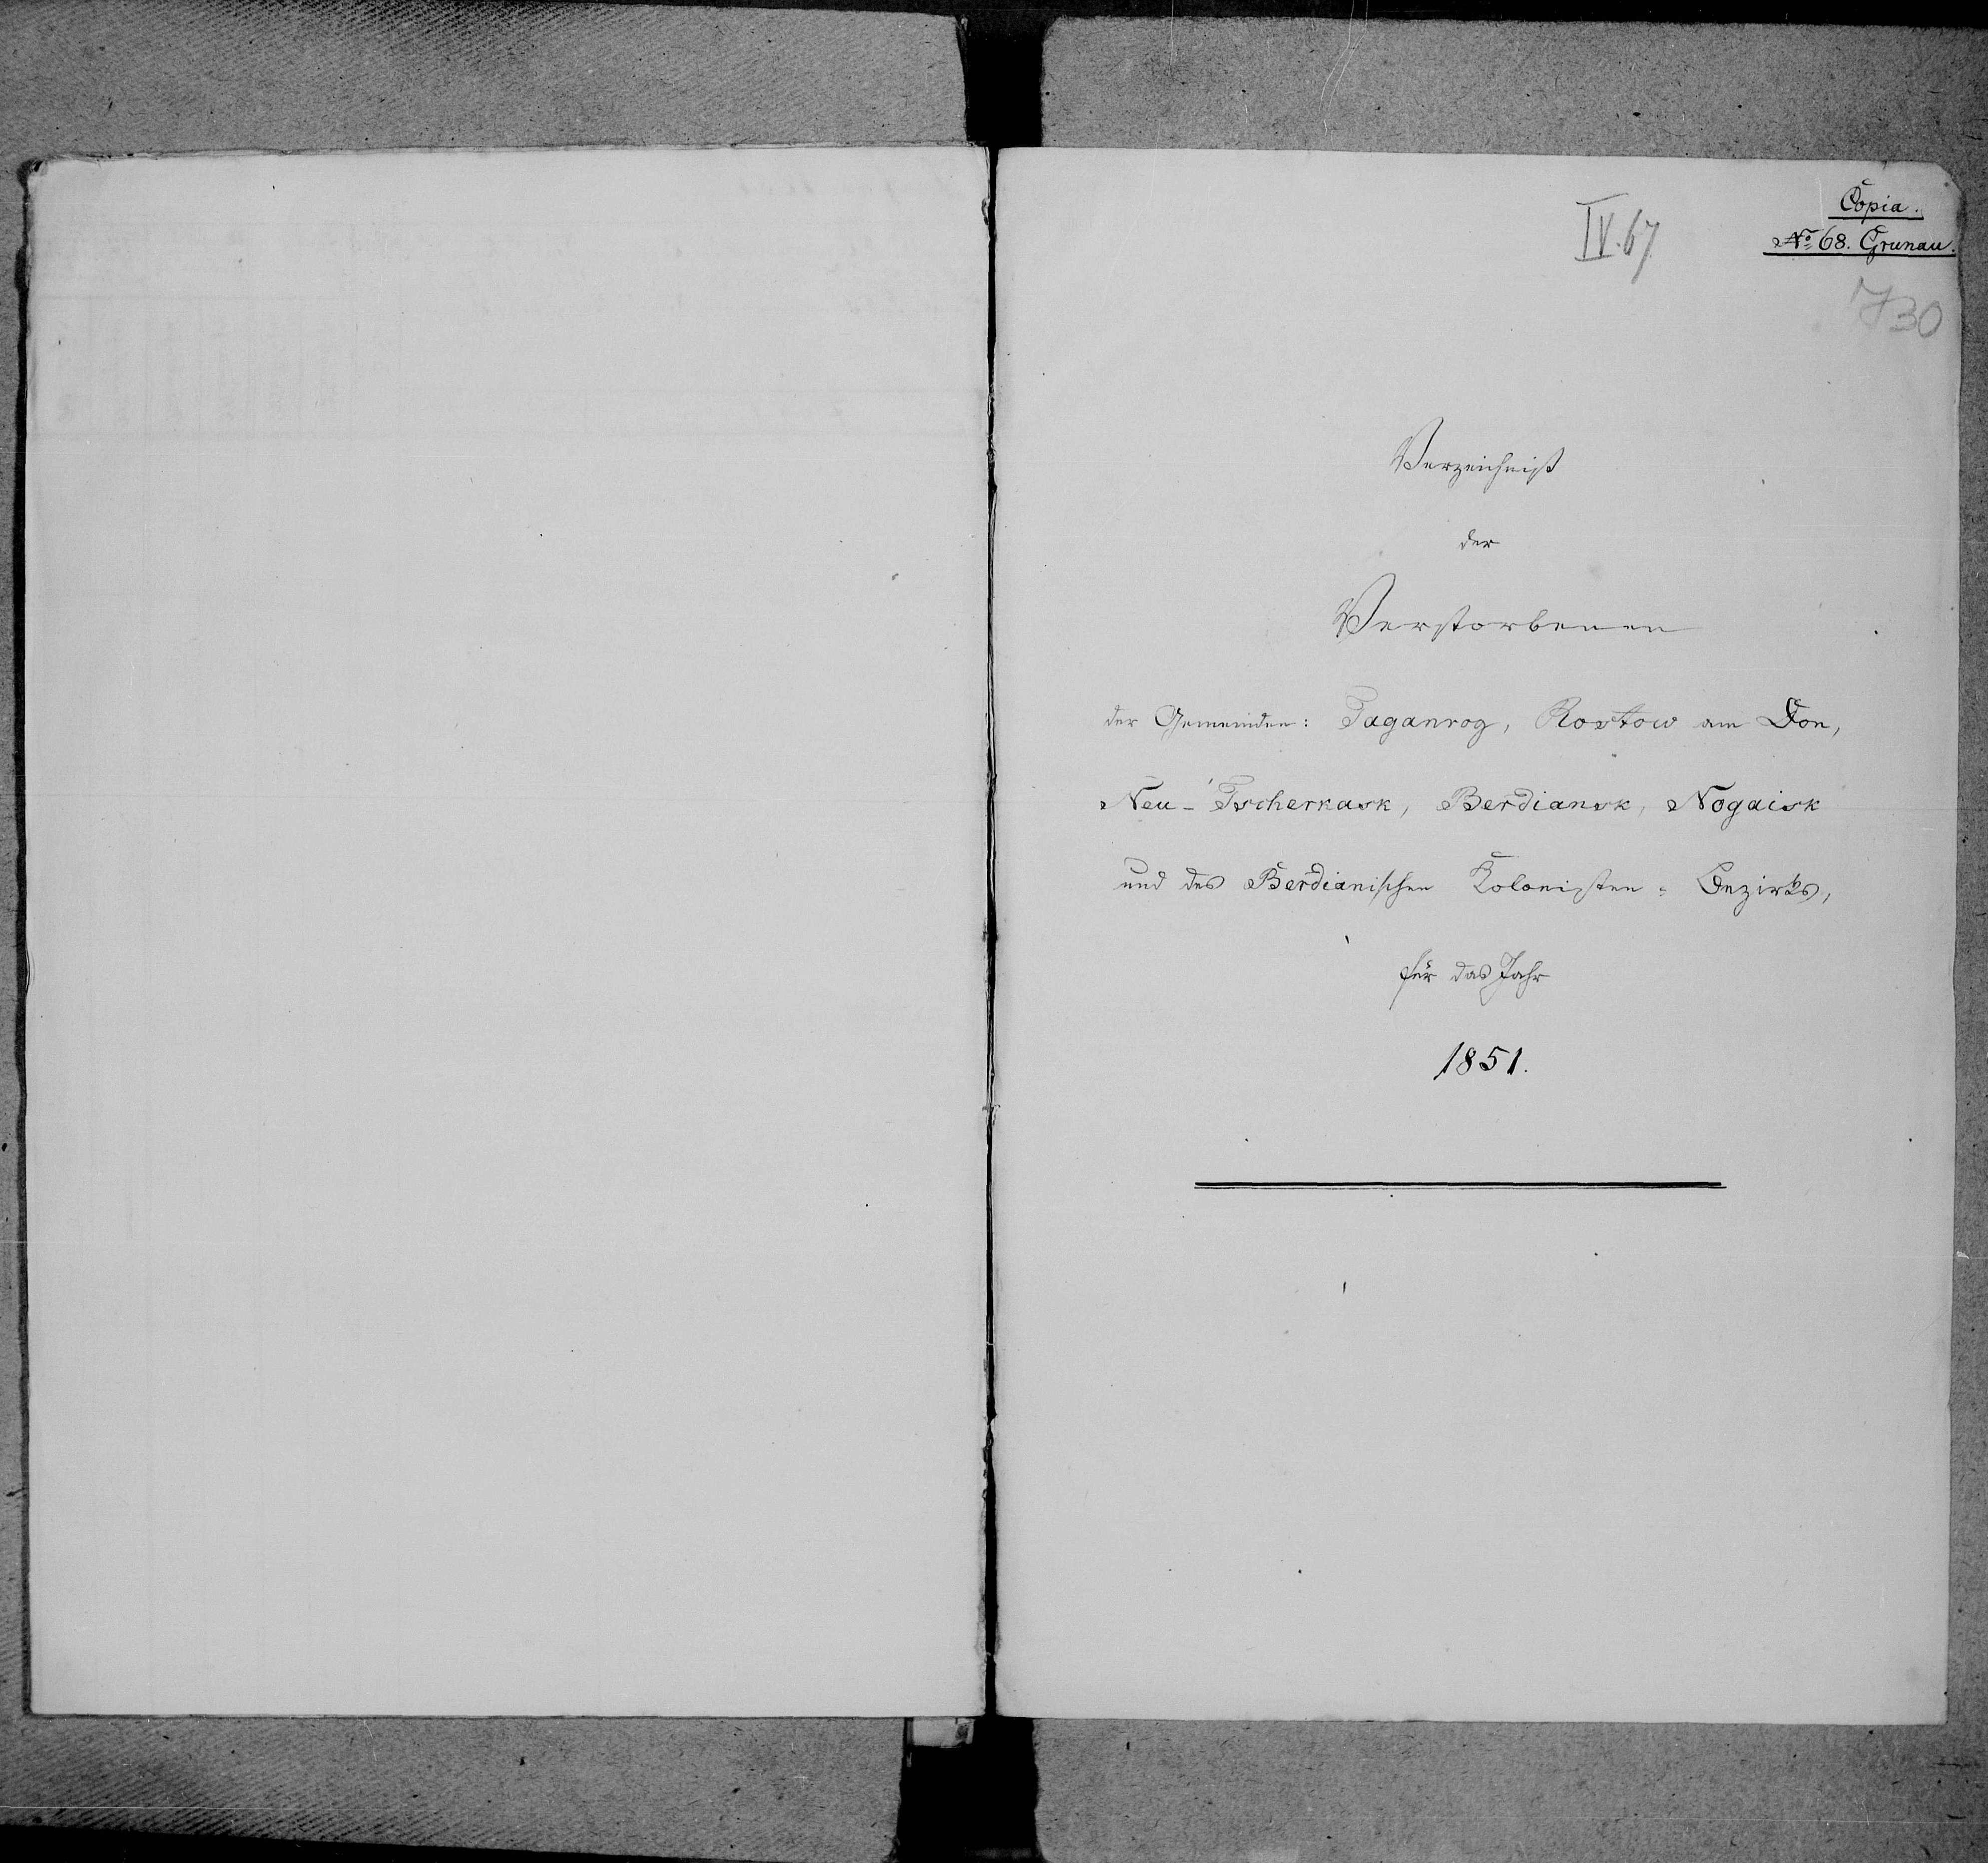 Copia.
IV. 67
№ 68. Grunau.
730
Verzeichniß
der
Verstorbenen
der Gemeinden: Taganrog, Rostow am Don,
Neu-Tscherkask, Berdiansk, Nogaisk
und des Berdianischen Kolonisten-Bezirks,
für das Jahr
1851.